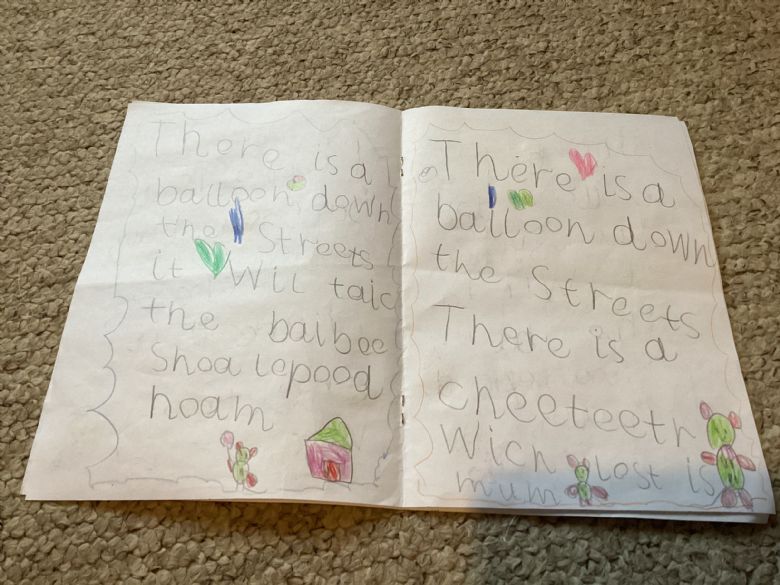 There is a
balloon down
the Streets
it Wil taic
the baibee
Shoa lepood
hoam
There is a
balloon down
the Streets
There is a
cheeteetr
Wich lost is
mum